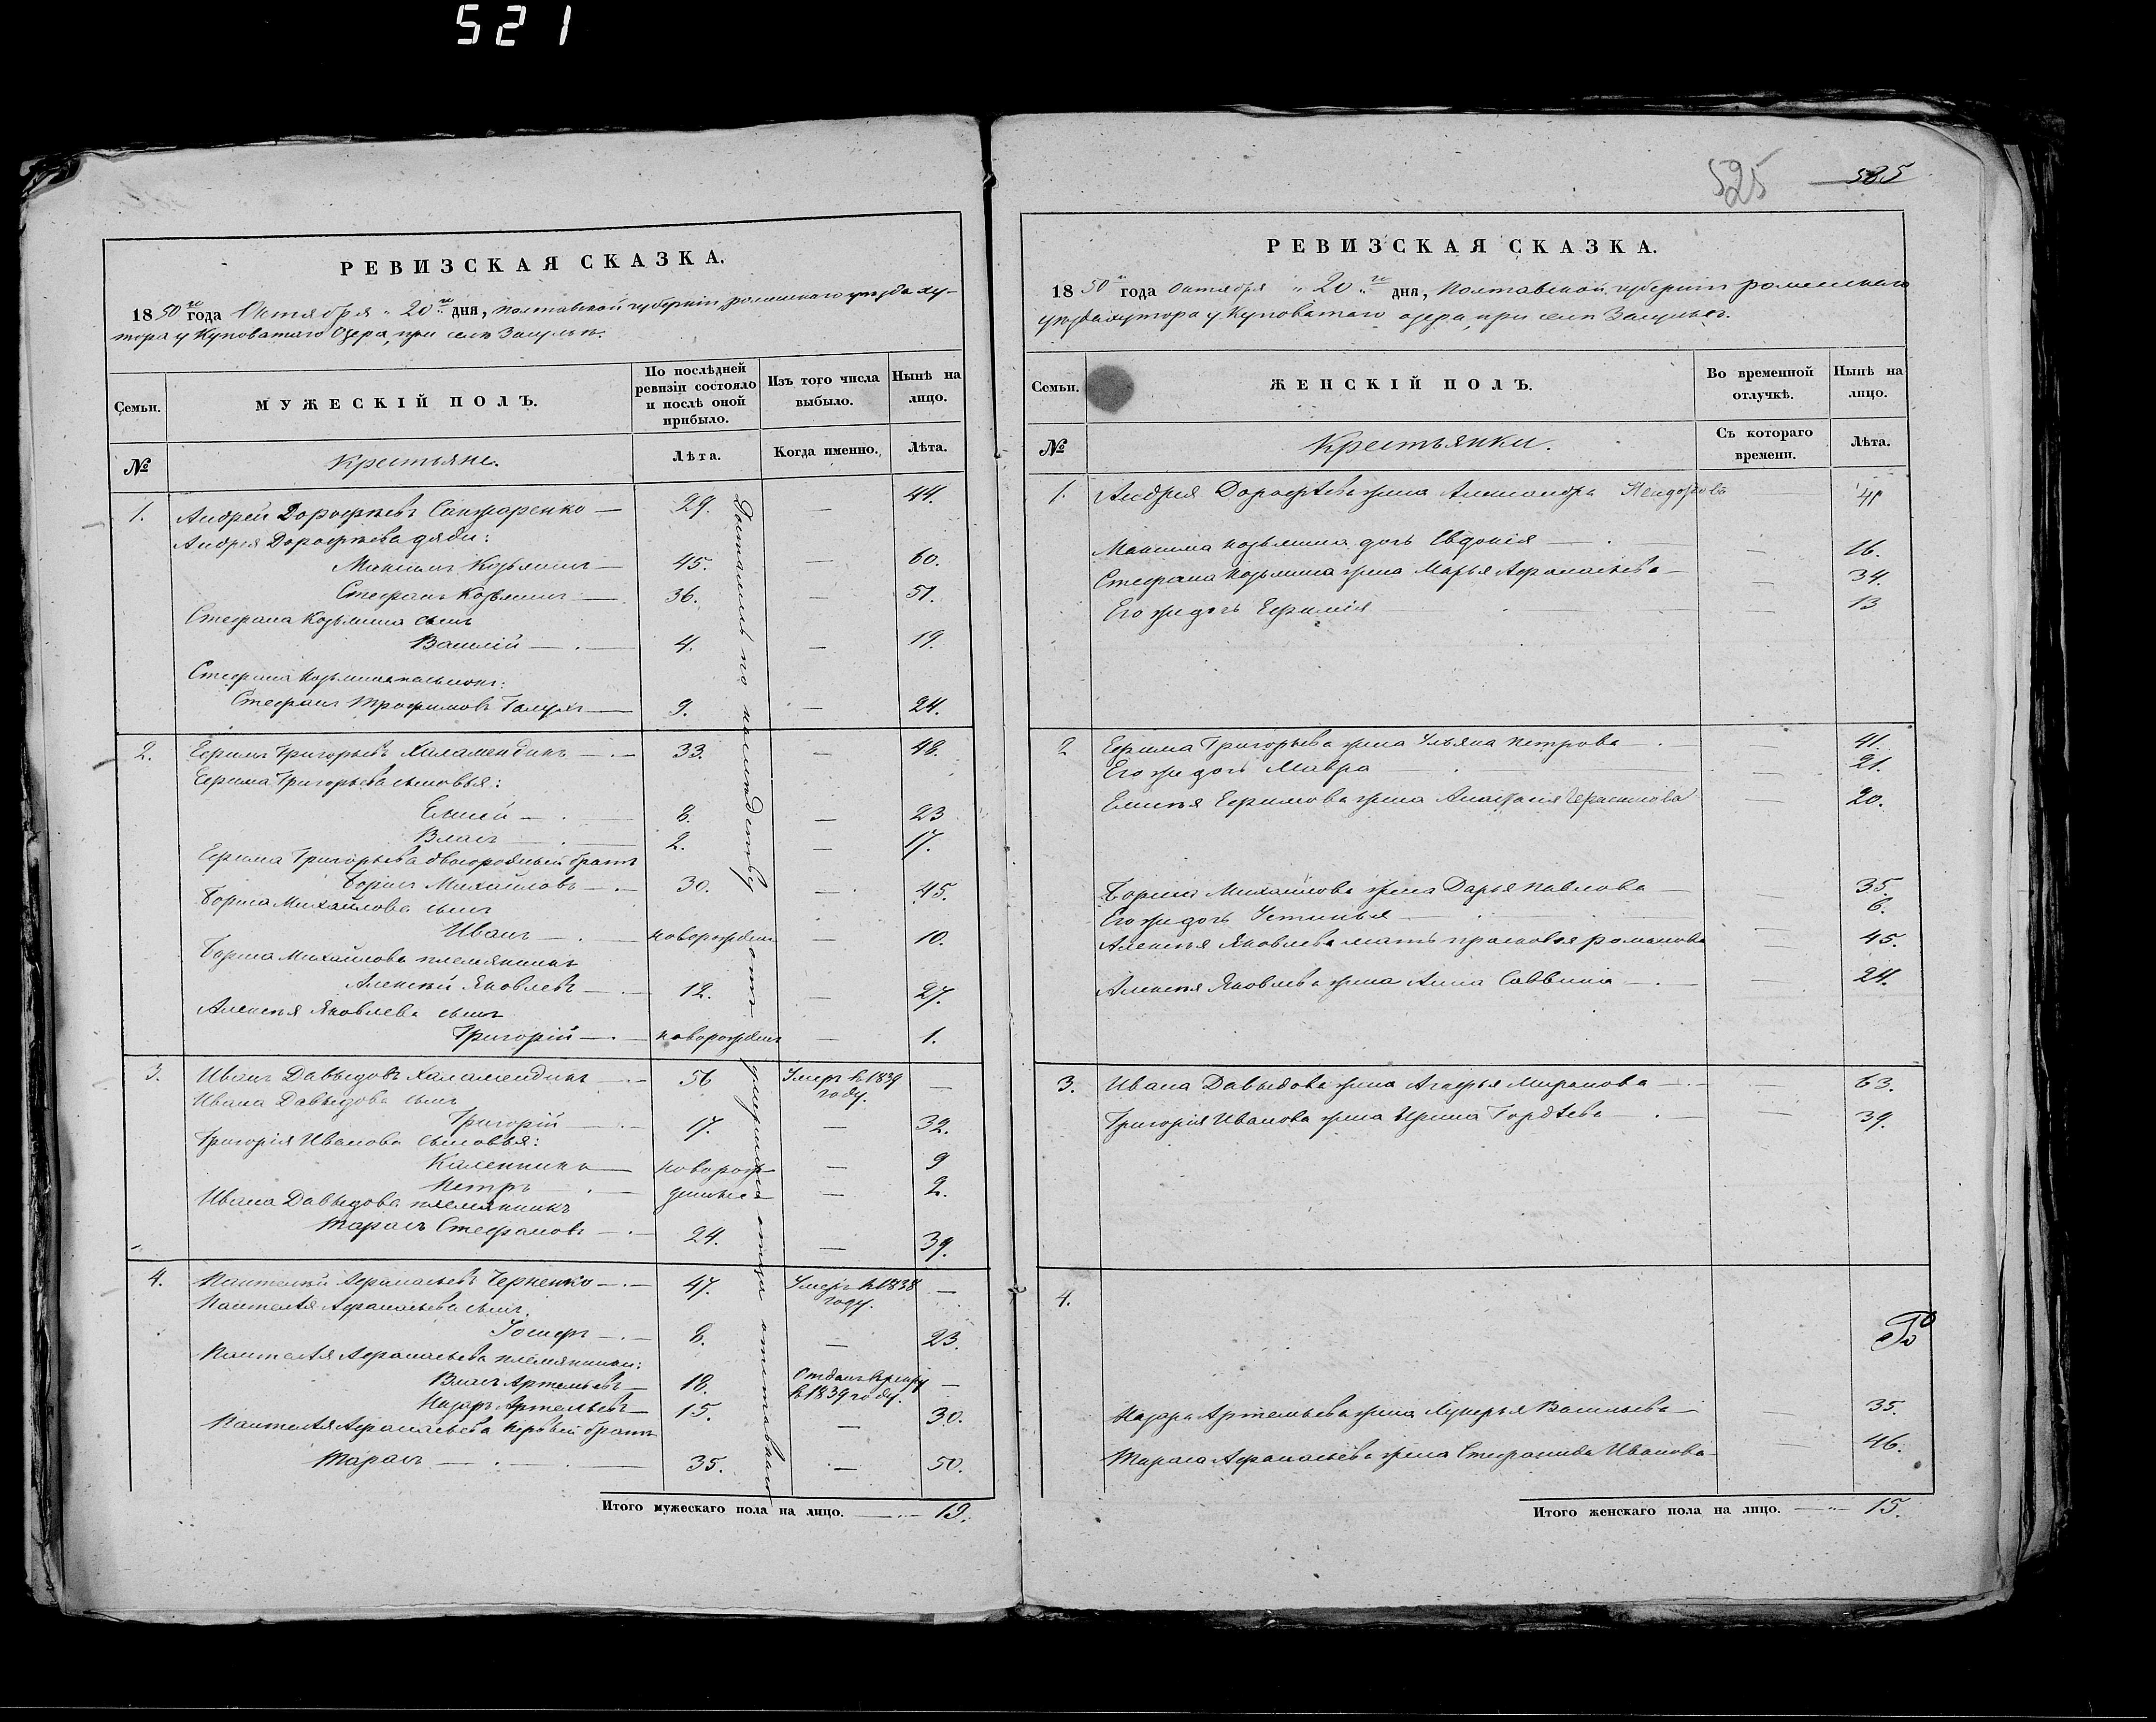 521
РЕВИЗСКАЯ СКАЗКА.
1850го года Октября 20го дня, полтавской губерніи роменскаго уѣзда ху-
тора у Куповатаго Озера, при селѣ Засульѣ.
Семьи. МУЖЕСКІЙ ПОЛЪ. По послѣдней ревизіи состояло и послѣ оной прибыло. Изъ того числа выбыло. Нынѣ на лицо.
№ Крестьяне. Лѣта. Когда именно. Лѣта.
1. Андрей Дорофѣевъ — 29. — 44.
Андрея Дорофѣева дяди:
Максимъ Козьминъ — 45. — 60.
Стефанъ Козьминъ — 36. — 51.
Стефана Козьмина сынъ
Василій — 4. — 19.
Стефана Козьмина
Стефанъ Трофимовъ — 9. — 24.
2. Ефимъ Григорьевъ Халамендикъ — 33. — 48.
Ефима Григорьева сыновья:
Елисей — 8. — 23
Власъ — 2. — 17.
Ефима Григорьева двоюродный братъ
Борисъ Михайловъ — 30. — 45.
Бориса Михайлова сынъ
Иванъ — новорожден — 10.
Бориса Михайлова племянникъ
Алексѣй Яковлевъ — 12. — 27.
Алексѣя Яковлева сынъ
Григорій — новорожден — 1.
3. Иванъ Давыдовъ Халамендикъ — 56 Умеръ въ 1839 году. —
Ивана Давыдова сынъ
Григорій — 17. — 32.
Григорія Иванова сыновья:
Каленникъ — новорож- — 9
Петръ — денные — 2.
Ивана Давыдова племянникъ
Тарасъ Стефановъ — 24. — 39.
4. Пантелей Афанасьевъ Черненко — 47. Умеръ въ 1838 году. —
Пантелея Афанасьева сынъ
Іосифъ — 8. — 23.
Пантелея Афанасьева племянники:
Власъ Артемьевъ — 18. Отданъ в рекруты в 1839 году. —
Назаръ Артемьевъ — 15. — 30.
Пантелея Афанасьева братъ
Тарасъ — 35. — 50.
Достались по наслѣдству отъ умершаго отца
Итого мужескаго пола на лицо. — 19.
525 585
РЕВИЗСКАЯ СКАЗКА.
1850го года Октября 20го дня, Полтавской губерніи роменскаго
уѣзда хутора у Куповатаго озера, при селѣ Засульѣ.
Семьи. ЖЕНСКІЙ ПОЛЪ. Во временной отлучкѣ. Нынѣ на лицо.
№ Крестьянки. Съ котораго времени. Лѣта.
1. Андрея Дорофѣева жена Александра — 41
Максима козьмина дочь Евдокія — 16.
Стефана козьмина жена Марья Афанасьева — 34.
Его же дочь Ефимія — 13
2 Ефима Григорьева жена Ульяна петрова — 41.
Его же дочь Мавра — 21.
Елисея Ефимова жена Анастасія Герасимова — 20.
Бориса Михайлова жена Дарья павлова — 35.
Его же дочь Устинья — 6.
Алексѣя Яковлева мать прасковья романова — 45.
Алексѣя Яковлева жена Анна Саввина — 24.
3. Ивана Давыдова жена Агафья Миронова — 63.
Григорія Иванова жена Ирина Гордѣева — 39.
4.
Назара Артемьева жена Лукерья Васильева — 35.
Тараса Афанасьева жена Стефанида Иванова — 46.
Итого женскаго пола на лицо. — 15.